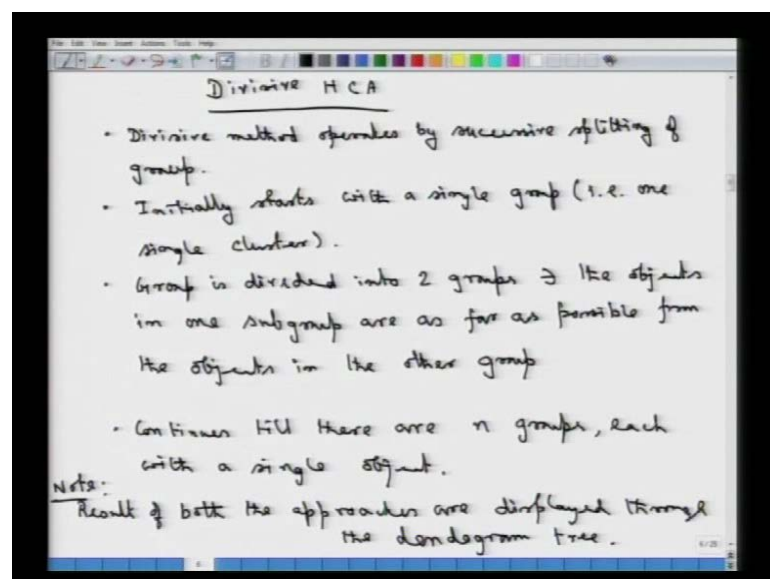 File Edit View Insert Actions Tools Help
Divisive HCA
• Divisive method operates by successive splitting of
group.
• Initially starts with a single group (i.e. one
single cluster).
• Group is divided into 2 groups ∋ the objects
in one subgroup are as far as possible from
the objects in the other group
• Continues till there are n groups, each
with a single object.
Note:
Result of both the approaches are displayed through
the dendegram tree.